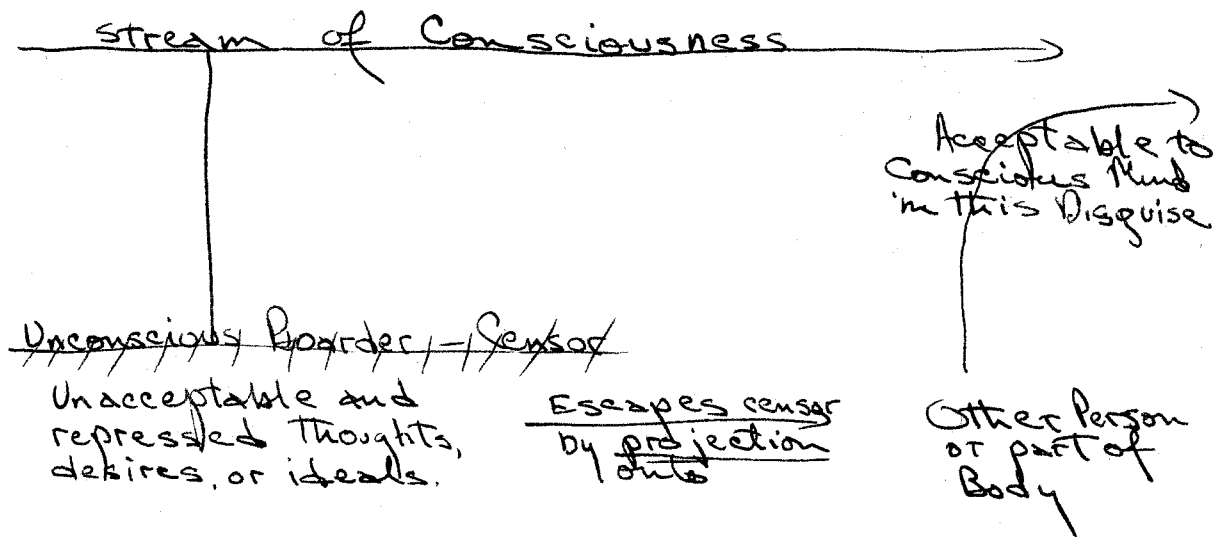 Stream of Consciousness
Acceptable to
Conscious Mind
in this Disguise
Unconscious Boarder - Censor
Unacceptable and
repressed thoughts,
desires, or ideals.
Escapes censor
by projection
onto
Other Person
or part of
Body